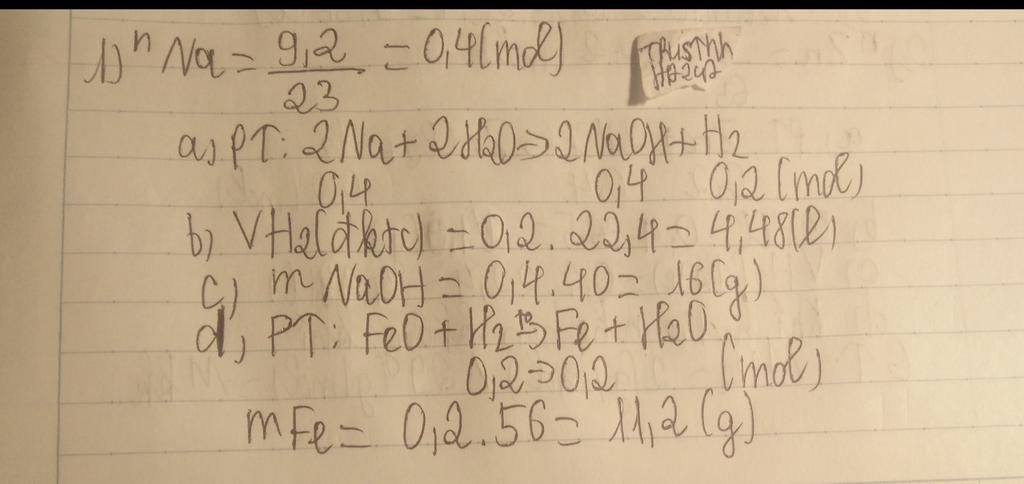 1) n Na = 9,2 / 23 = 0,4 (mol)
a) PT: 2Na + 2H2O → 2NaOH + H2
0,4 0,4 0,2 (mol)
b) VH2(đktc) = 0,2 . 22,4 = 4,48(l)
c) mNaOH = 0,4 . 40 = 16(g)
d) PT: FeO + H2 t° → Fe + H2O
0,2 → 0,2 (mol)
mFe = 0,2 . 56 = 11,2 (g)